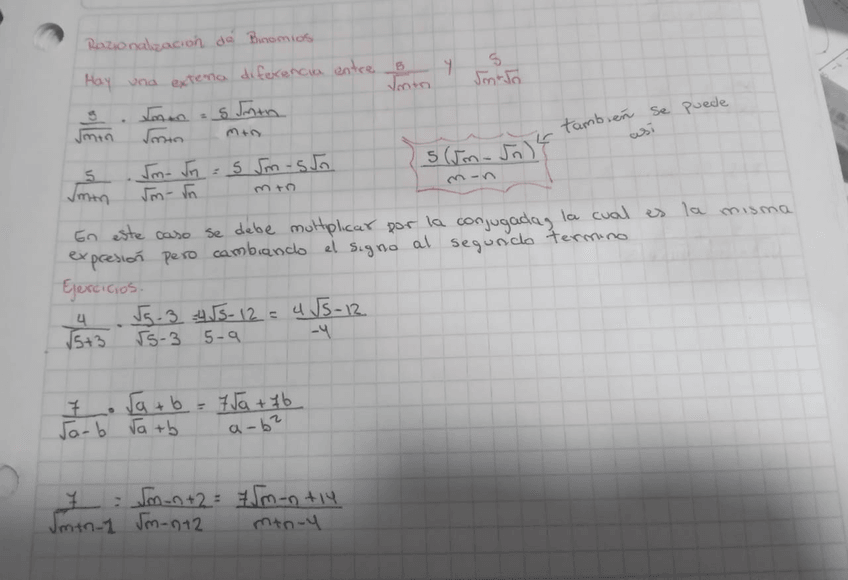 Razionalizacion de Binomios
Hay una externa diferencia entre 5/√m+n y 5/√m+√n
5/√m+n · √m+n/√m+n = 5√m+n/m+n
5/√m+n · √m-√n/√m-√n = 5√m-5√n/m+n
5(√m-√n)/m-n también se puede
asi
En este caso se debe multiplicar por la conjugada, la cual es la misma
expresión pero cambiando el signo al segundo termino
Ejercicios.
4/√5+3 · √5-3/√5-3 = 4√5-12/5-9 = 4√5-12/-4
7/√a-b · √a+b/√a+b = 7√a+7b/a-b²
7/√m+n-2 = √m-n+2/√m-n+2 = 7√m-n+14/m+n-4